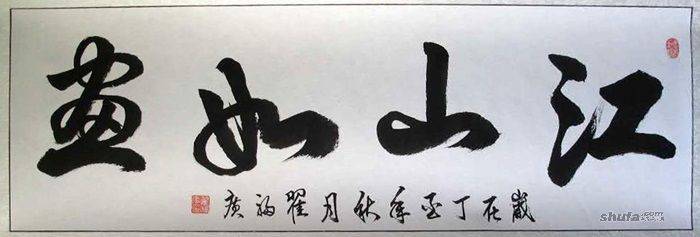 江山如画
歲在丁亥年秋月翟福广
shufa